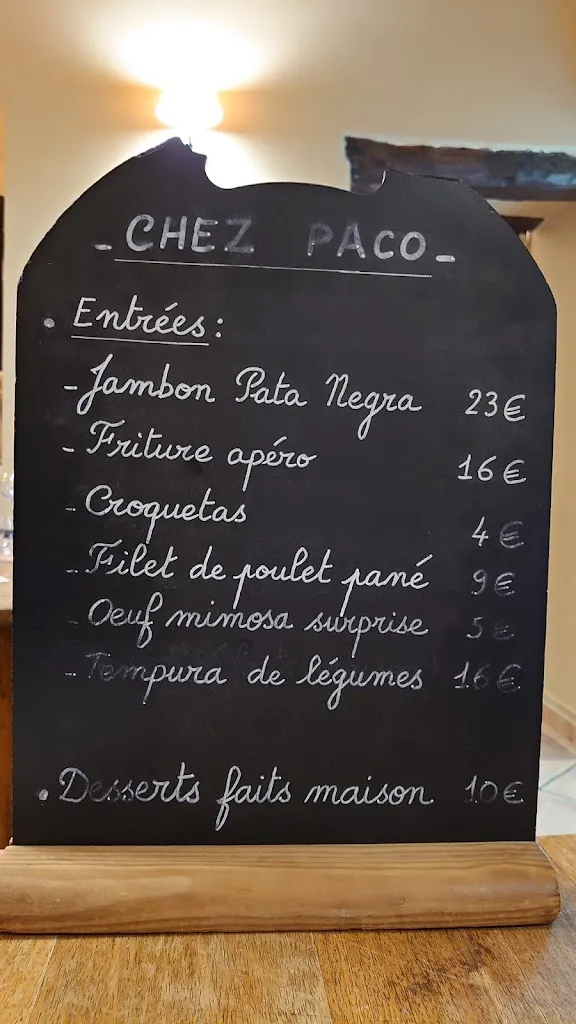 - CHEZ PACO -
• Entrées :
- Jambon Pata Negra 23€
- Friture apéro 16€
- Croquetas 4€
- Filet de poulet pané 9€
- Oeuf mimosa surprise 5€
- Tempura de légumes 16€
• Desserts faits maison 10€